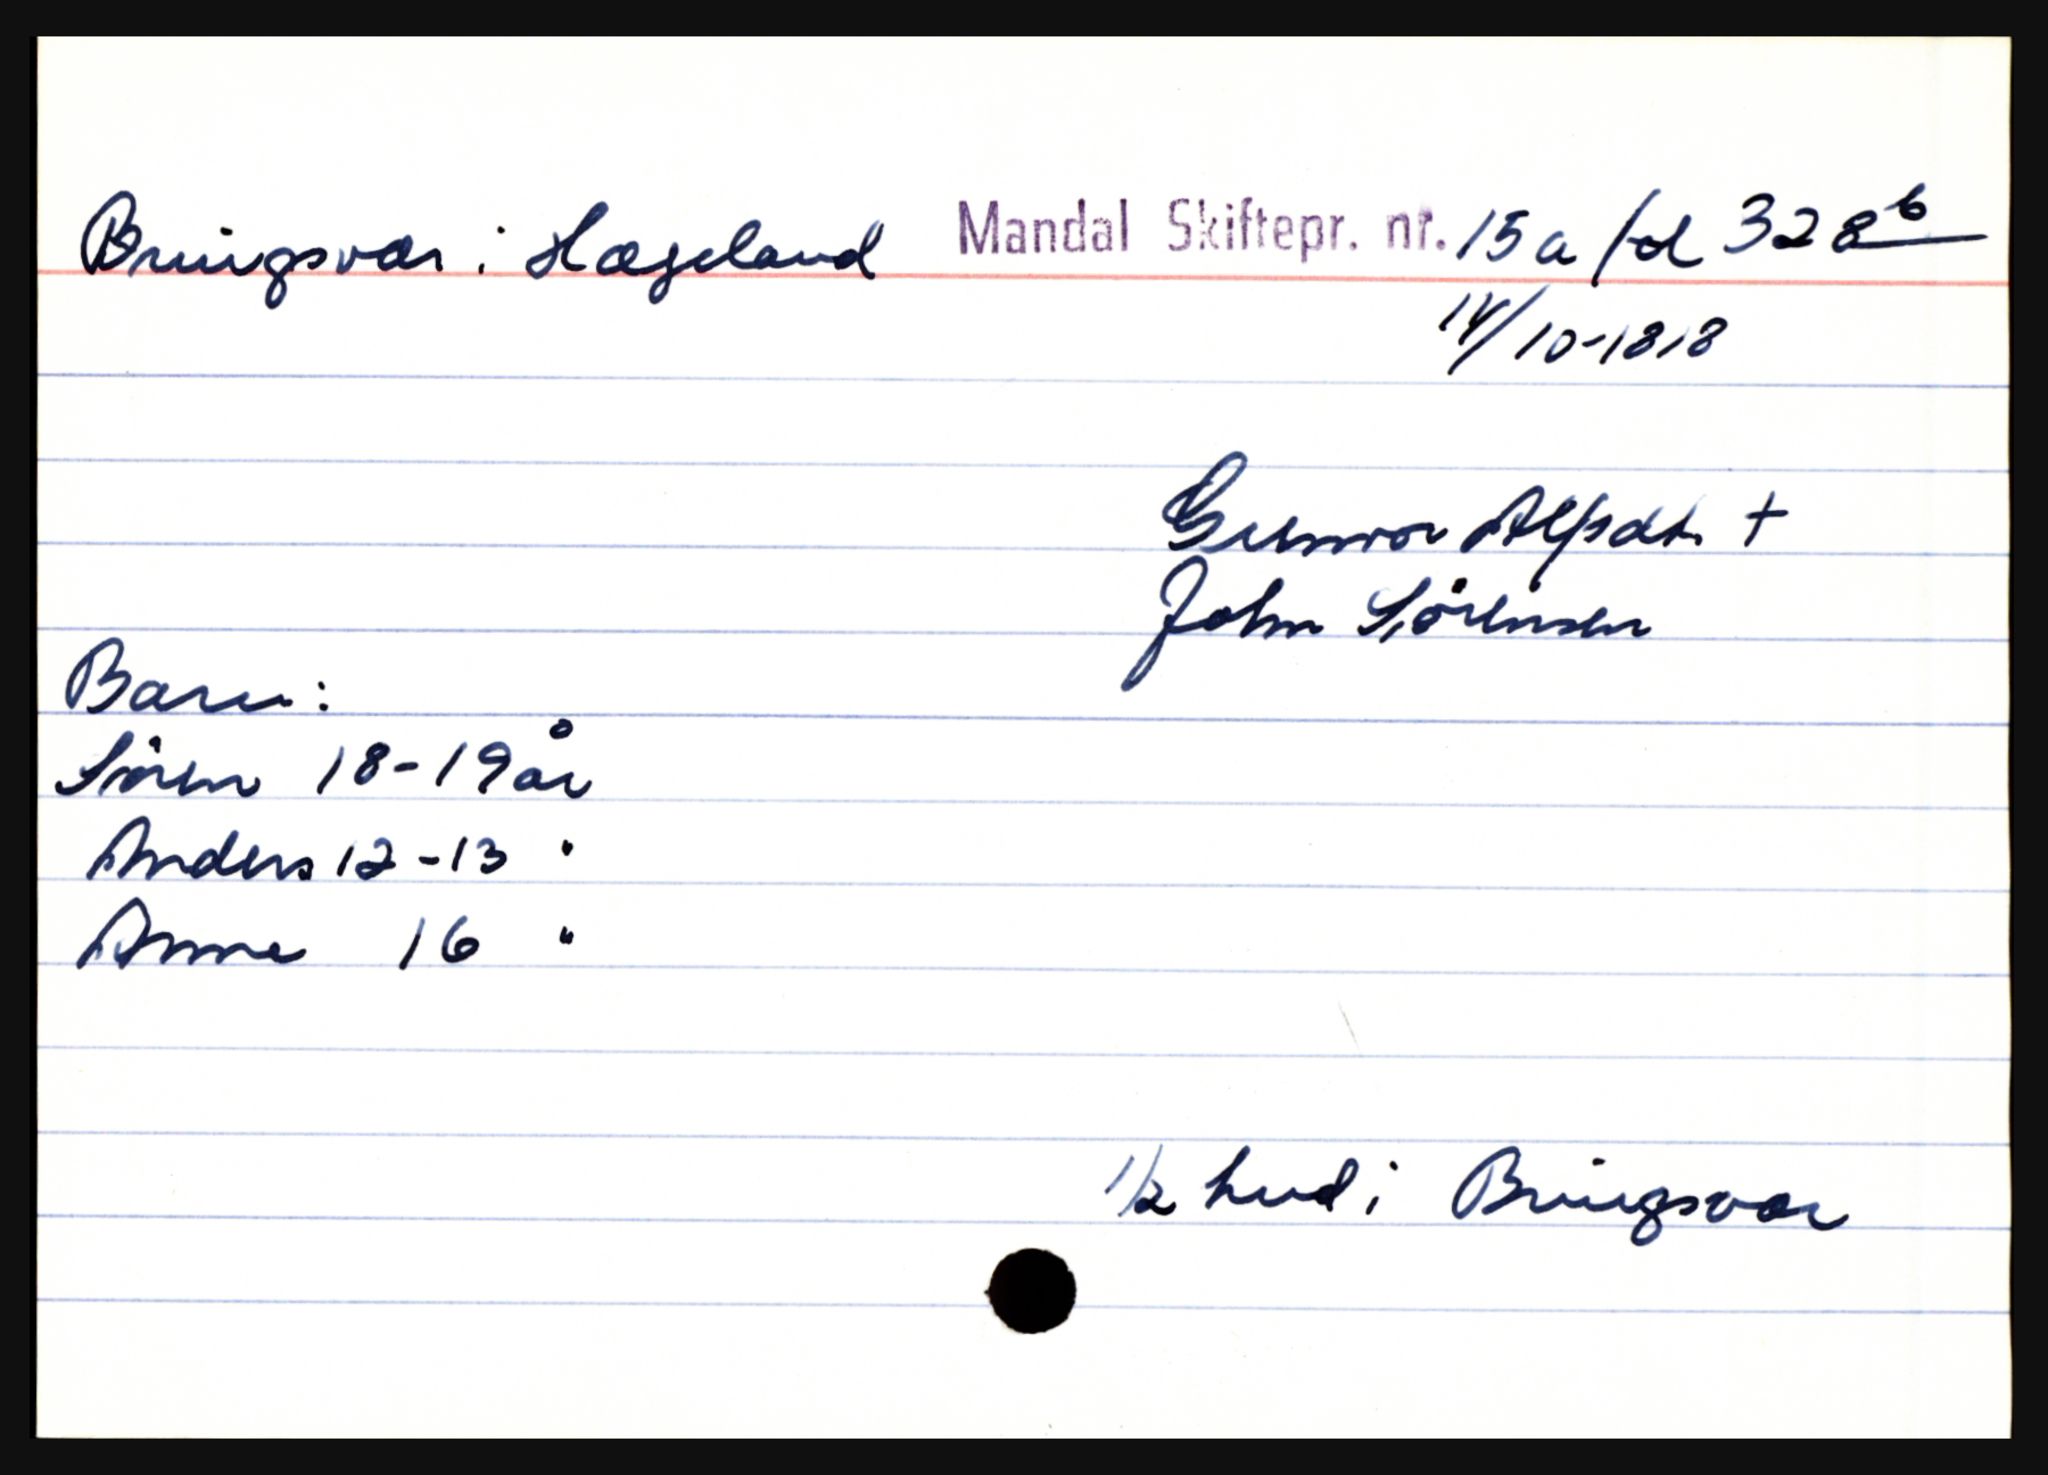 Bringsvær i Hægeland Mandal Skiftepr. nr. 15a /d 328b
14/10-1818
Gunvor Alfsdt. +
John Sörensen
Barn:
Sören 18-19 år
Anders 12-13 "
Anne 16 "
1/2 hud i Bringsvær